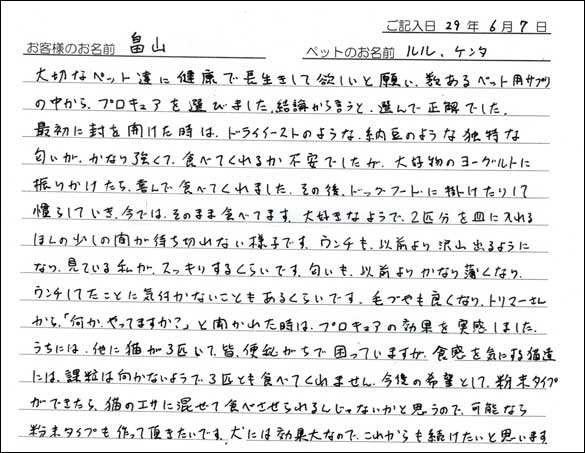 ご記入日 29 年 6 月 7 日
お客様のお名前 畠山 ペットのお名前 ルル、ケンタ
大切なペット達に健康で長生きして欲しいと願い、数あるペット用サプリ
の中から、プロキュアを選びました。結論から言うと、選んで正解でした。
最初に封を開けた時は、ドライイーストのような、納豆のような独特な
匂いが、かなり強くて、食べてくれるか不安でしたが、大好物のヨーグルトに
振りかけたら、喜んで食べてくれました。その後、ドッグフードに掛けたりして
慣らしていき、今では、そのまま食べてます。大好きなようで、2匹分を皿に入れる
ほんの少しの間が待ち切れない様子です。ウンチも、以前より沢山出るように
なり、見ている私が、スッキリするくらいです。匂いも、以前よりかなり薄くなり、
ウンチしてたことに気付かないこともあるくらいです。毛づやも良くなり、トリマーさん
から、「何か、やってますか?」と聞かれた時は、プロキュアの効果を実感しました。
うちには、他に猫が3匹いて、皆、便秘がちで困っていますが、食感を気にする猫達
には、課粒は向かないようで3匹とも食べてくれません。今後の希望として、粉末タイプ
ができたら、猫のエサに混ぜて食べさせられるんじゃないかと思うので、可能なら
粉末タイプも作って頂きたいです。犬には効果大なので、これからも続けたいと思います。